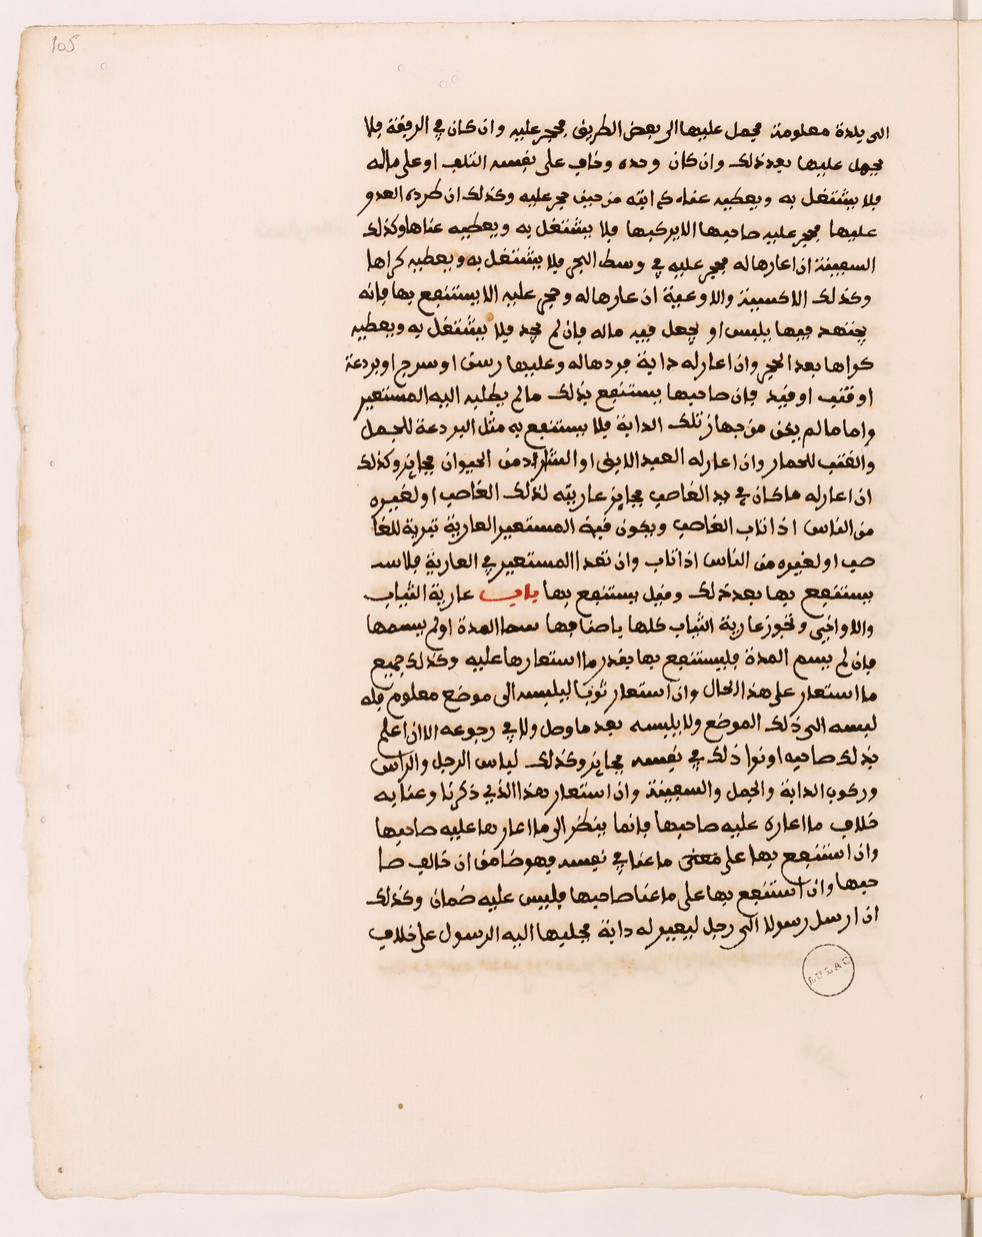 105
الى بلدة معلومة فحمل عليها الى بعض الطريق فحجر عليه وان كان في الرفقة فلا
يحمل عليها بعد ذلك وان كان وحده وخاف على نفسه التلف او على ماله
فلا يشتغل به ويعطيه عناء دابته من حيث حجر عليه وكذلك ان طرده العدو
عليها فحجر عليه صاحبها الا يركبها فلا يشتغل به ويعطيه عناها وكذلك
السفينة ان اعارها له فحجر عليه في وسط البحر فلا يشتغل به ويعطيه كراها
وكذلك الاكسية والاوعية ان عارها له وحجر عليه الا يستنفع بها فانه
يجتهد فيما يلبس او يجعل فيه ماله فان لم يجد فلا يشتغل به ويعطيه
كراها بعد الحجر وان اعار له دابة فردها له وعليها رسن او سرج او بردعة
او قتب او قيد فان صاحبها يستنفع بذلك ما لم يطلبه اليه المستعير
واما ما لم يكن من جهاز تلك الدابة فلا يستنفع به مثل البردعة للجمل
والقتب للحمار وان اعار له العبد الابق او الشارد من الحيوان فجايز وكذلك
ان اعار له ما كان في يد الغاصب فجايز عاريته لذلك الغاصب او لغيره
من الناس اذا تاب الغاصب ويكون قبض المستعير العارية تبرية للغا
صب او لغيره من الناس اذا تاب وان تعدا المستعير في العارية فلا
يستنفع بها بعد ذلك وقيل يستنفع بها باب عارية الثياب
والاواني وتجوز عارية الثياب كلها باصنافها سما المدة او لم يسمها
فان لم يسم المدة فليستنفع بها بقدر ما استعارها عليه وكذلك جميع
ما استعار على هذا الحال وان استعار ثوبا ليلبسه الى موضع معلوم فله
لبسه الى ذلك الموضع ولا يلبسه بعد ما وصل ولا في رجوعه الا ان اعلم
بذلك صاحبه او نوا ذلك في نفسه فجايز وكذلك لباس الرجل والراس
وركوب الدابة والجمل والسفينة وان استعار هذا الذي ذكرنا وعنا به
خلاف ما اعاره عليه صاحبها فانما ينظر الى ما اعارها عليه صاحبها
وان استنفع بها على معنى ما عنا في نفسه فهو ضامن ان خالف صا
حبها وان استنفع بها على ما عنا صاحبها فليس عليه ضمان وكذلك
ان ارسل رسولا الى رجل ليعير له دابة فجلبها اليه الرسول على خلاف
BULAC